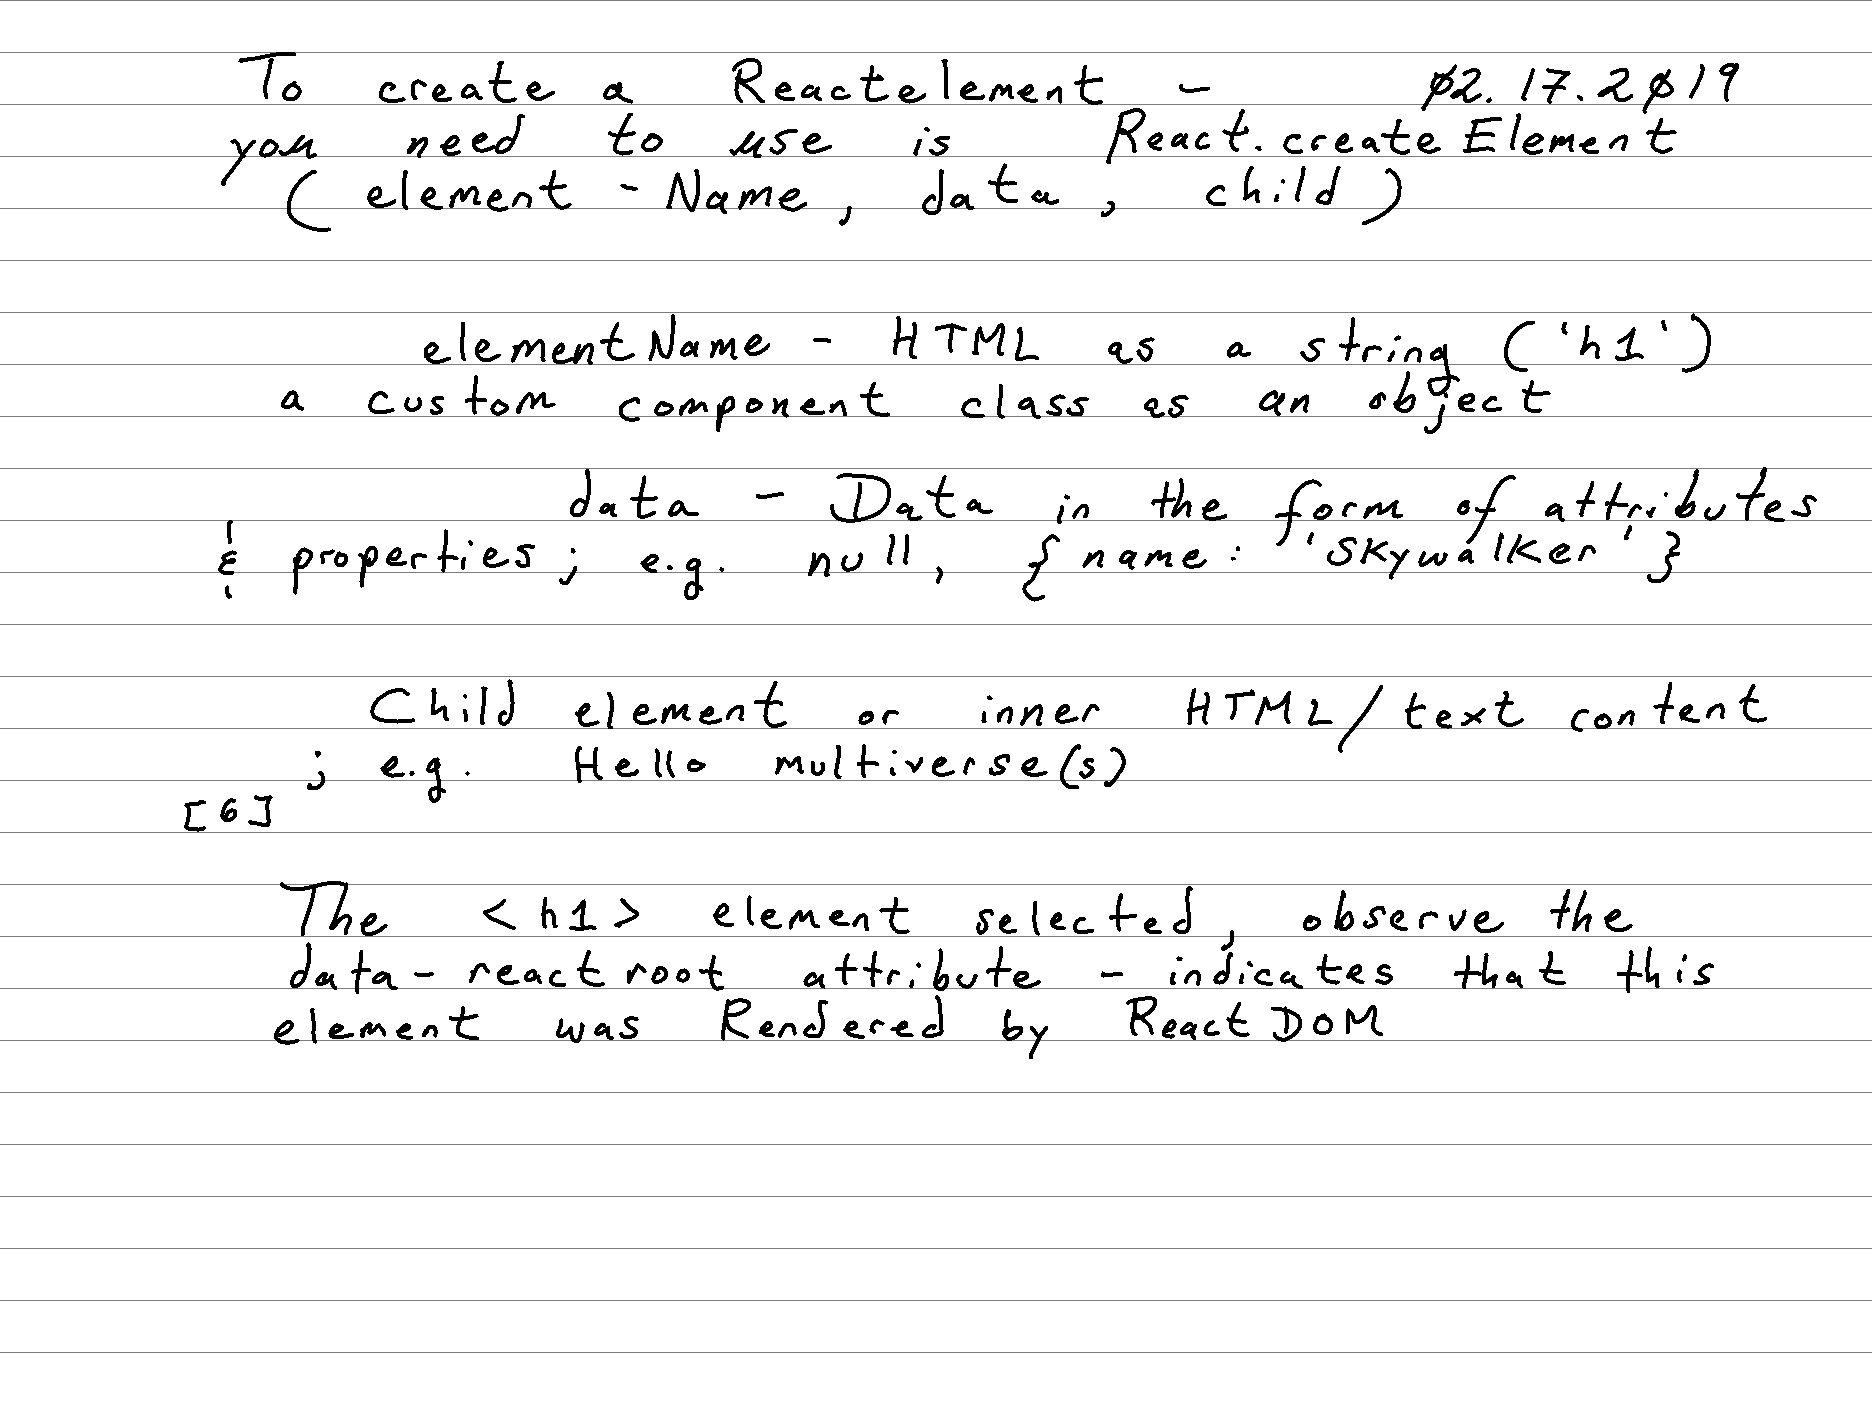 To create a Reactelement - 02.17.2019
you need to use is React.createElement
( element - Name, data, child )
elementName - HTML as a string ('h1')
a custom component class as an object
data - Data in the form of attributes
& properties; e.g. null, { name: 'Skywalker' }
Child element or inner HTML/text content
; e.g. Hello multiverse(s)
[6]
The <h1> element selected, observe the
data-reactroot attribute - indicates that this
element was Rendered by ReactDOM